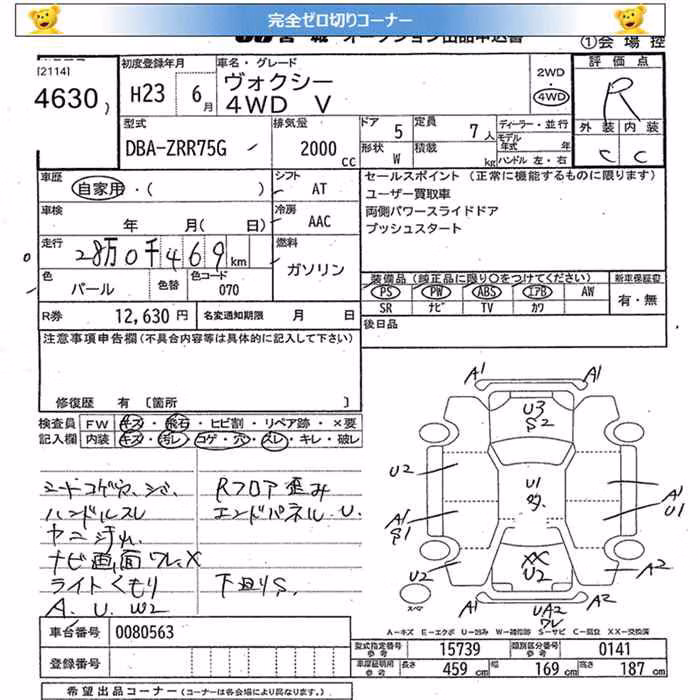 完全ゼロ切りコーナー
オークション出品申込書 ①会場控
[2114]
4630)
初度登録年月
H23 6月
車名・グレード
ヴォクシー
4WD V
2WD
4WD
評価点
R
外装 内装
C C
型式
DBA-ZRR75G
排気量
2000cc
ドア 5
定員 7人
形状 W
積載 kg
ディーラー・並行
モデル年式 年
ハンドル 左・右
車歴
自家用・( )
シフト
AT
車検
年 月( 日)
冷房
AAC
走行
28万0千469km
燃料
ガソリン
色
パール
色替
色コード
070
R券 12,630円
名変通知期限 月 日
セールスポイント (正常に機能するものに限ります)
ユーザー買取車
両側パワースライドドア
プッシュスタート
装備品 (純正品に限り○をつけてください)
PS PW ABS エアB AW
SR ナビ TV カワ
新車保証書
有・無
後日品
注意事項申告欄 (不具合内容等は具体的に記入して下さい)
修復歴 有 〔箇所 〕
検査員記入欄
FW キズ・飛石・ヒビ割・リペア跡・×要
内装 キズ・汚レ・コゲ・穴・スレ・キレ・破レ
シートコゲ穴、シミ、
ハンドルスレ
ヤニ汚れ
ナビ画面ワレ、X
ライトくもり
A. U. W2
Rフロア歪み
エンドパネル U.
下廻りS.
A1 A1
U3
S2
U2
U1
A1
U1
A1
S1
U2
XX
U2
A2
A1
UA2
ワレ
A2
スペア
A-キズ E-エクボ U-凹み W-補修跡 S-サビ C-腐食 XX-交換済
車台番号 0080563
登録番号
型式指定番号 参考 15739
類別区分番号 参考 0141
車庫証明用 参考 長さ 459cm 幅 169cm 高さ 187cm
希望出品コーナー (コーナーは各会場により異なります。)